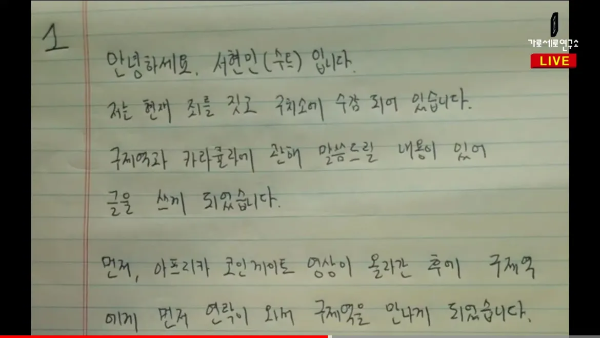 1
가로세로연구소
LIVE
안녕하세요. 서현민(수트) 입니다.
저는 현재 죄를 짓고 구치소에 수감 되어 있습니다.
구제역과 카라큘라에 관해 말씀드릴 내용이 있어
글을 쓰게 되었습니다.
먼저, 아프리카 코인게이트 영상이 올라간 후에 구제역
에게 먼저 연락이 와서 구제역을 만나게 되었습니다.